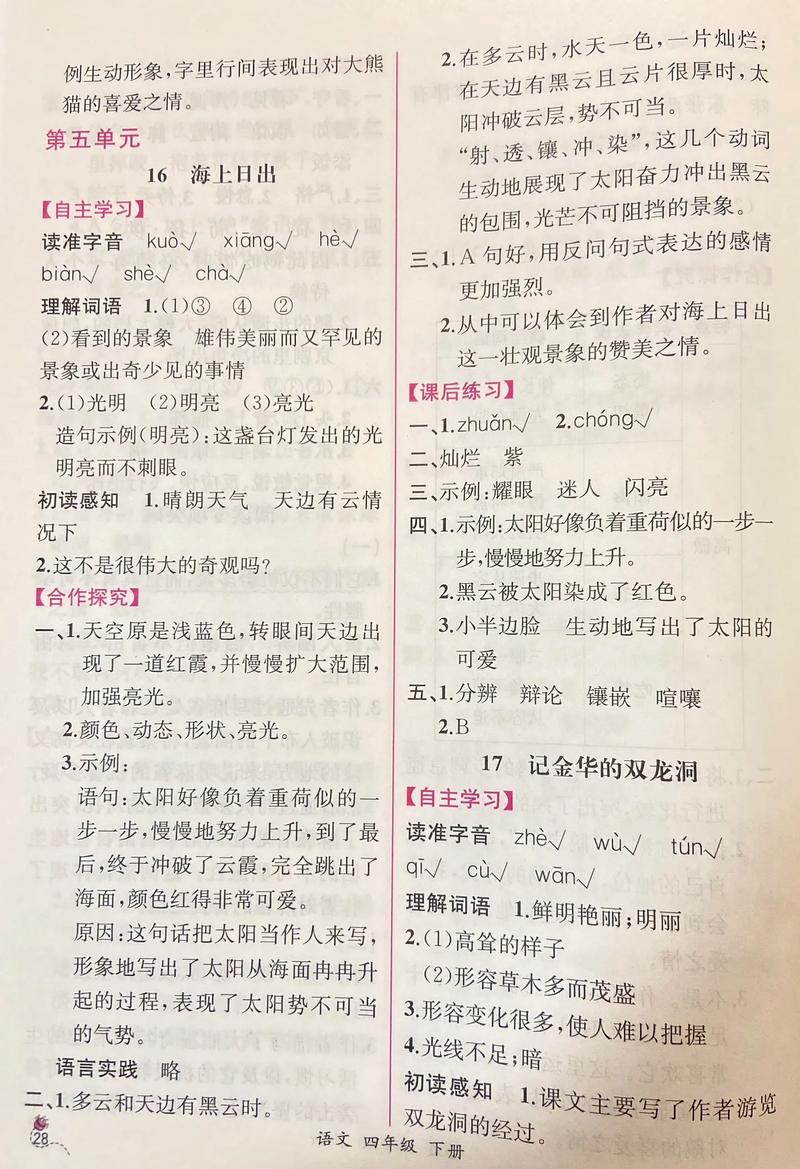 例生动形象,字里行间表现出对大熊
猫的喜爱之情。
第五单元
16 海上日出
【自主学习】
读准字音 kuò√ xiāng√ hè√
biàn√ shè√ chà√
理解词语 1.(1)③ ④ ②
(2)看到的景象 雄伟美丽而又罕见的
景象或出奇少见的事情
2.(1)光明 (2)明亮 (3)亮光
造句示例(明亮):这盏台灯发出的光
明亮而不刺眼。
初读感知 1.晴朗天气 天边有云情
况下
2.这不是很伟大的奇观吗?
【合作探究】
一、1.天空原是浅蓝色,转眼间天边出
现了一道红霞,并慢慢扩大范围,
加强亮光。
2.颜色、动态、形状、亮光。
3.示例:
语句:太阳好像负着重荷似的一
步一步,慢慢地努力上升,到了最
后,终于冲破了云霞,完全跳出了
海面,颜色红得非常可爱。
原因:这句话把太阳当作人来写,
形象地写出了太阳从海面冉冉升
起的过程,表现了太阳势不可当
的气势。
语言实践 略
二、1.多云和天边有黑云时。
2.在多云时,水天一色,一片灿烂;
在天边有黑云且云片很厚时,太
阳冲破云层,势不可当。
“射、透、镶、冲、染”,这几个动词
生动地展现了太阳奋力冲出黑云
的包围,光芒不可阻挡的景象。
三、1.A 句好,用反问句式表达的感情
更加强烈。
2.从中可以体会到作者对海上日出
这一壮观景象的赞美之情。
【课后练习】
一、1.zhuǎn√ 2.chóng√
二、灿烂 紫
三、示例:耀眼 迷人 闪亮
四、1.示例:太阳好像负着重荷似的一步一
步,慢慢地努力上升。
2.黑云被太阳染成了红色。
3.小半边脸 生动地写出了太阳的
可爱
五、1.分辨 辩论 镶嵌 喧嚷
2.B
17 记金华的双龙洞
【自主学习】
读准字音 zhè√ wù√ tún√
qī√ cù√ wān√
理解词语 1.鲜明艳丽;明丽
2.(1)高耸的样子
(2)形容草木多而茂盛
3.形容变化很多,使人难以把握
4.光线不足;暗
初读感知 1.课文主要写了作者游览
双龙洞的经过。
28
语文 四年级 下册